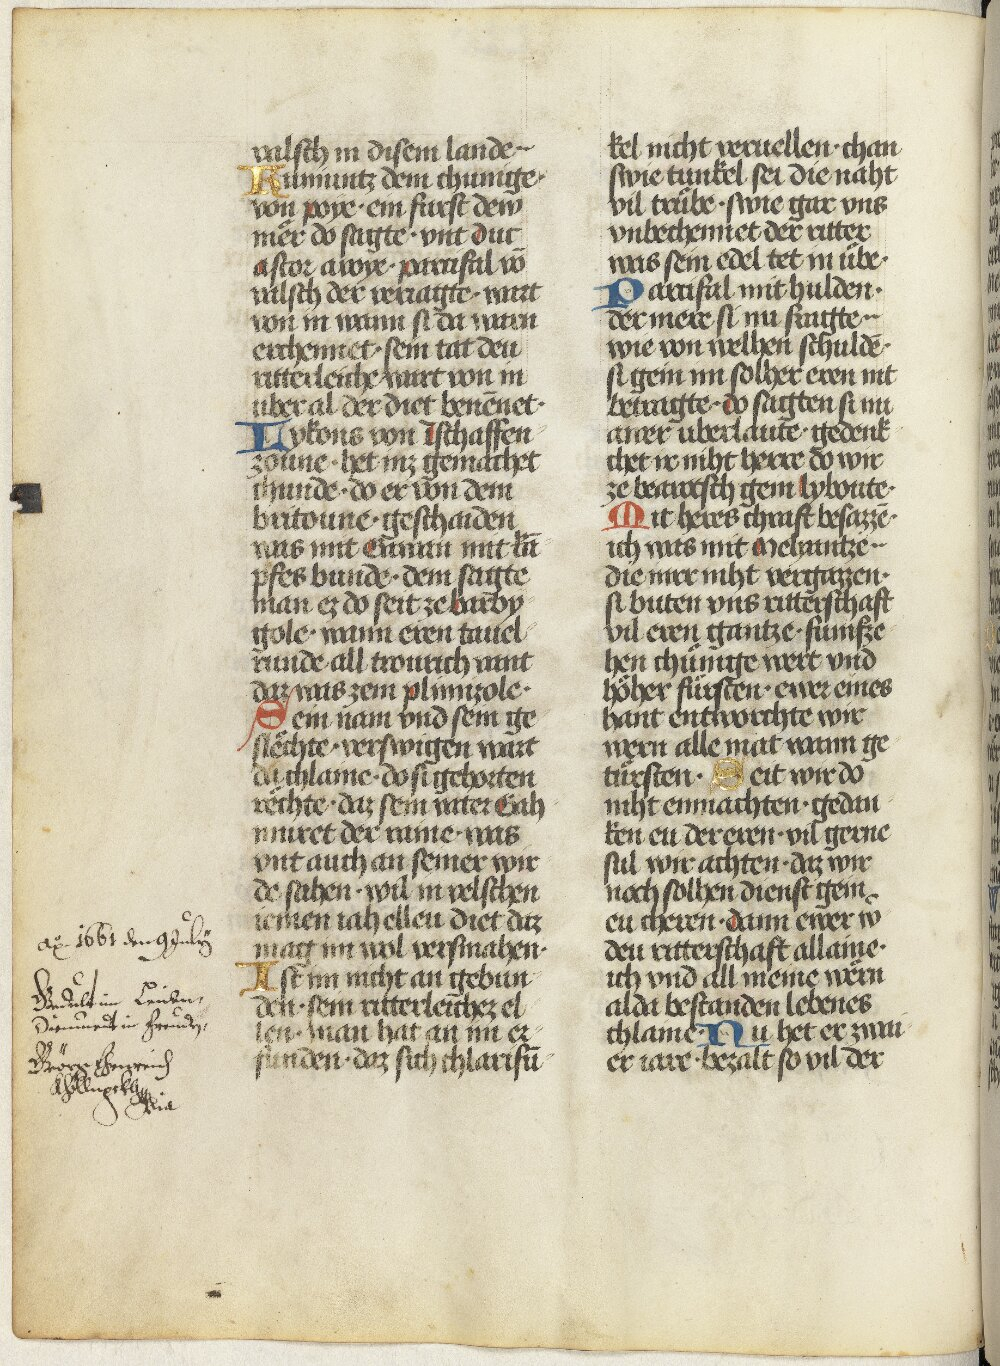 valsch in disem lande·
Kununtz dem chunige·
von poye· ein furst dew
mer do sagte· vnt duc
astor a woye· partifal vō
valsch der veriagte· wart
von in wann si da warn
erchennet· sein tat den
ritterleiche wart von in
uber al der diet benēnet·
Lykons von Ischaffen
zoune· het inz gemachet
chunde· do er von dem
britoune· geschaiden
was mit Gawan mit kā
pfes bunde· dem sagte
man ez do seit ze barby
gole· wann eren tauel
runde all trourich want
daz was zem plimizole·
Sein nam vnd sein ge
slächte· verswigen wart
da chlaine· do si gehorten
rechte· daz sein vater Gah
muret der raine· was
vnt auch an seiner wir
de sahen· wil in velschen
iemen iah elleu diet daz
mag im wol versmahen·
Ist im nicht an gebun
den· sein ritterleichez el
len· man hat an im er
funden· daz sich chlarifū
kel nicht veruellen· chan
swie tunkel sei die naht
vil trübe· swie gar vns
vnbechennet der ritter
was sein edel tet in übe·
Partifal mit hulden·
der mere si nu fragte·
wie von welhen schuldē·
si gein im solher eren nit
betragte· do sagten si im
aner uberlaute· gedenk
chet ir niht herre do wir
ze bearotsch gein lyboute·
Mit heres chraft besazzē·
ich was mit Melyantze·
die mir niht vergazzen·
si buten vns ritterschaft
vil eren gantze· funfze
hen chünige wert vnd
höher fürsten· ewer eines
hant entworchte wir
wern alle mat wann ge
türsten· Seit wir do
niht enmachten· gedan
ken eu der eren· vil gerne
sul wir achten· daz wir
noch solhen dienst gein
eu cheren· dann ewer w
deu ritterschaft allaine·
ich vnd all meine wern
alda bestanden lebenes
chlaine· Nu het er zwai
er iare· bezalt so vil der
aō 1661 den 9 July
Gedult in Leiden,